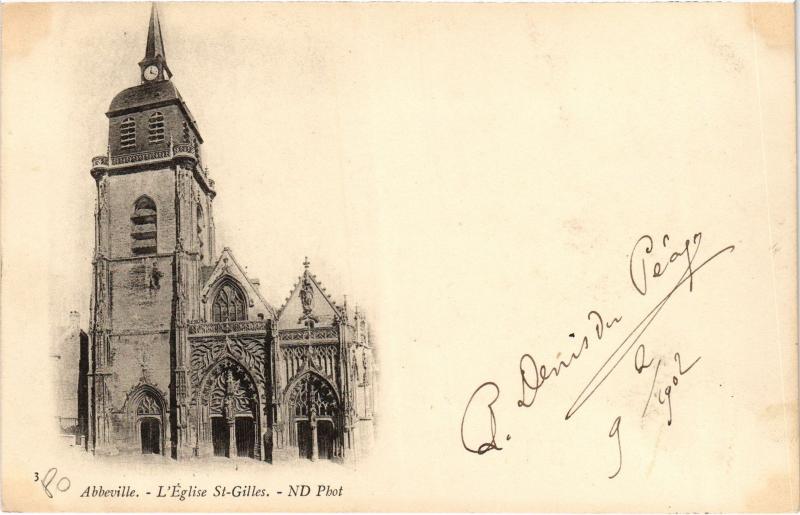 3
80
Abbeville. - L'Église St-Gilles. - ND Phot
Denis du Péage
9/2 1902